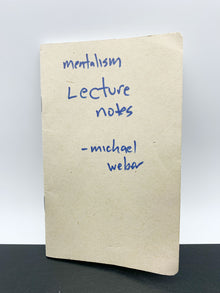 mentalism
Lecture
notes
- michael
weber